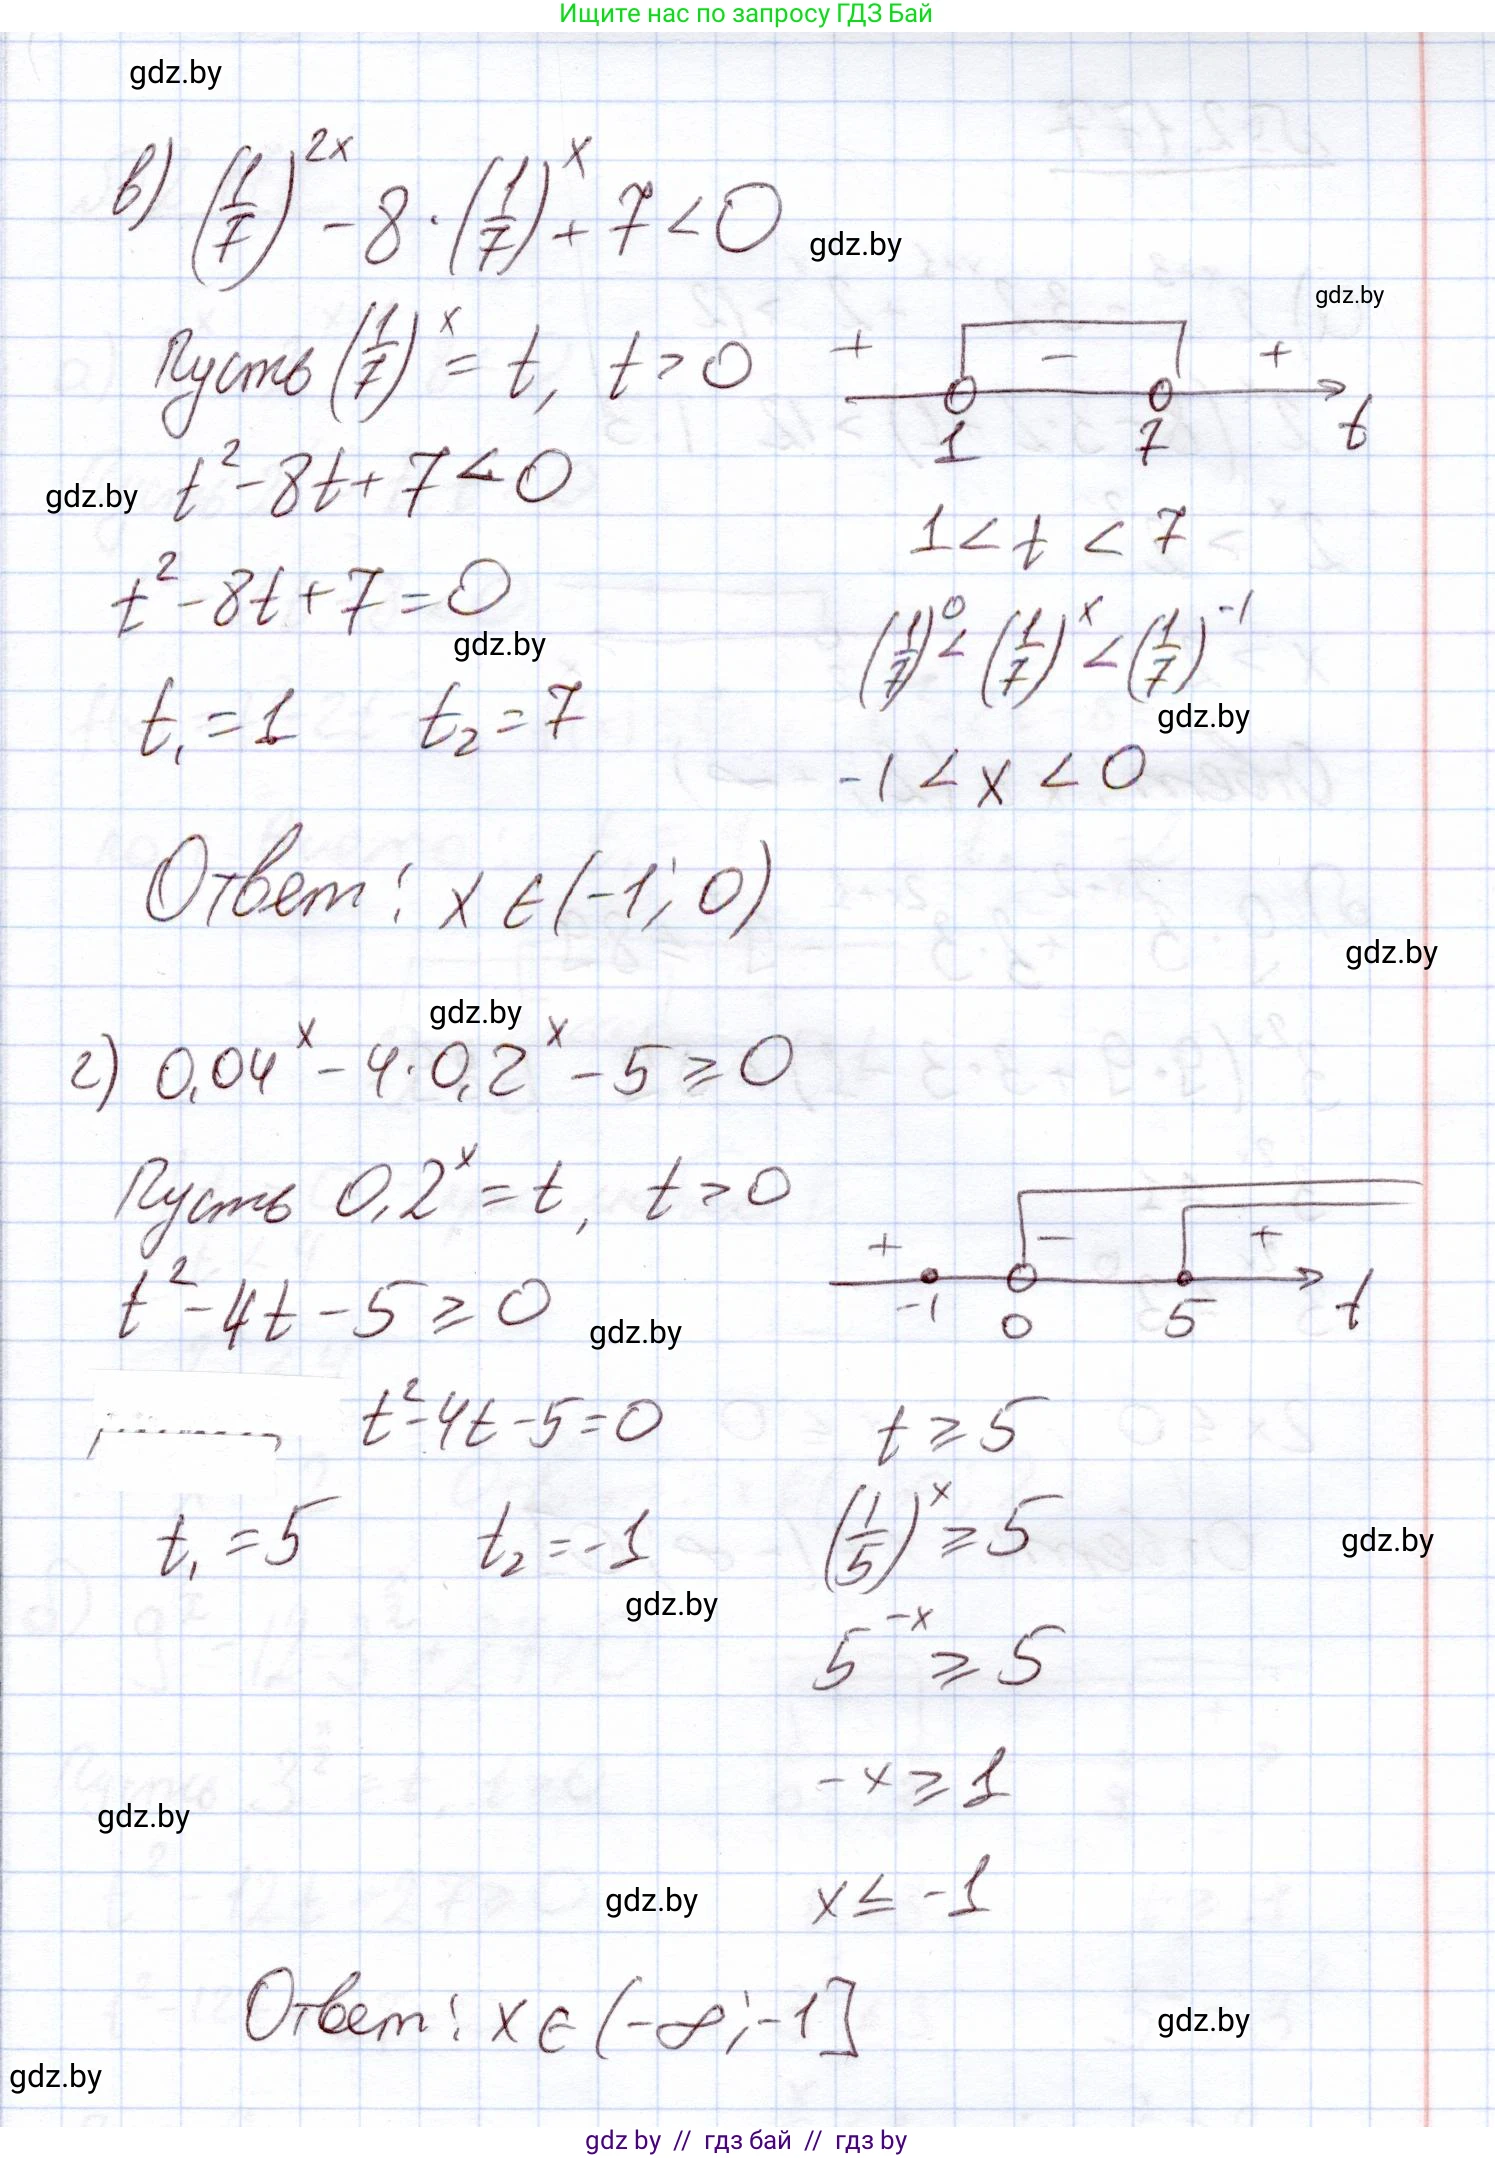 Ищите нас по запросу ГДЗ Бай
gdz.by
в) (1/7)^2x - 8 · (1/7)^x + 7 < 0
gdz.by
gdz.by
Пусть (1/7)^x = t, t > 0
+ - +
1 7 t
t² - 8t + 7 < 0
gdz.by
1 < t < 7
t² - 8t + 7 = 0
(1/7)^0 < (1/7)^x < (1/7)^-1
gdz.by
t₁ = 1 t₂ = 7
gdz.by
-1 < x < 0
Ответ: x ∈ (-1; 0)
gdz.by
gdz.by
г) 0,04^x - 4 · 0,2^x - 5 ≥ 0
Пусть 0,2^x = t, t > 0
+ - +
-1 0 5 t
t² - 4t - 5 ≥ 0
gdz.by
t² - 4t - 5 = 0
t ≥ 5
t₁ = 5 t₂ = -1
(1/5)^x ≥ 5
gdz.by
gdz.by
5^-x ≥ 5
-x ≥ 1
gdz.by
x ≤ -1
gdz.by
Ответ: x ∈ (-∞; -1]
gdz.by
gdz.by
gdz by // гдз бай // гдз by